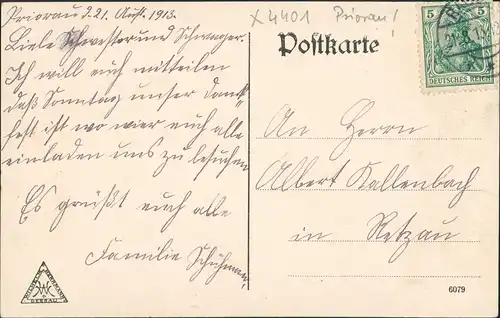 Priorau d. 21. Aust. 1913.
Liebe Schwester und Schwager.
Ich will euch mitteilen
daß Sonntag unser Dank-
fest ist wo wier euch alle
einladen uns zu besuchen
Es grüßt euch alle
Familie Schuhmann
X4401 Priorau!
Postkarte
5 5
DEUTSCHES REICH
An Herrn
Albert Kallenbach
in Retzau
DESSAU
6079